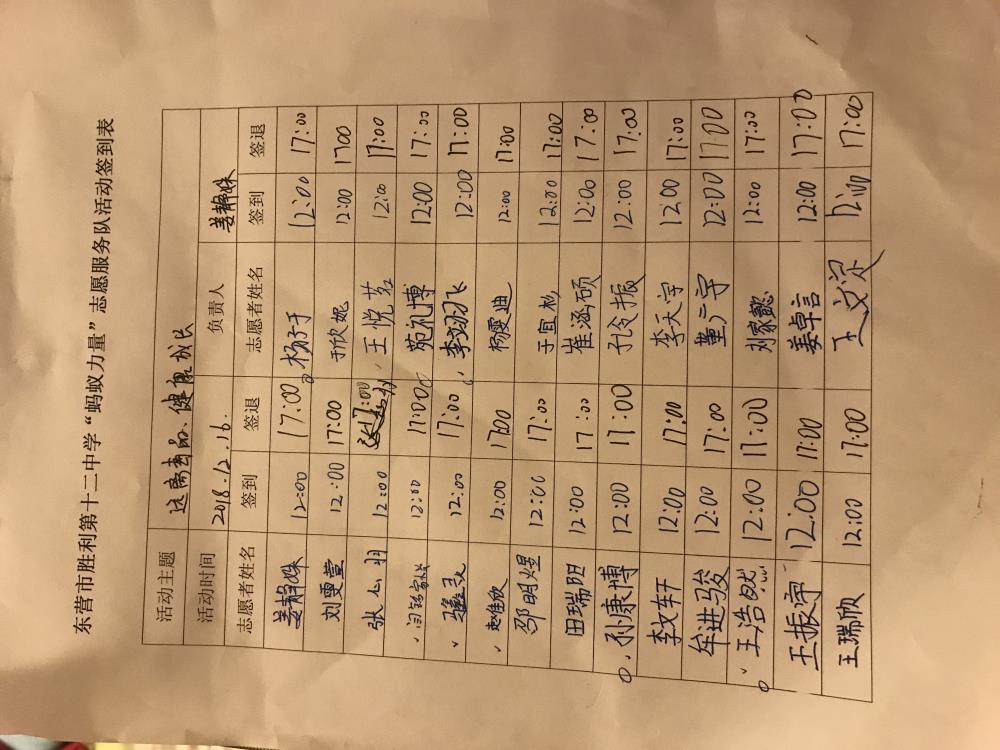 东营市胜利第十二中学“蚂蚁力量”志愿服务队活动签到表
活动主题 远离毒品、健康成长
活动时间 2018.12.16. 负责人 姜静姝
志愿者姓名 签到 签退 志愿者姓名 签到 签退
姜静姝 12:00 17:00 杨 12:00 17:00
刘雯萱 12:00 17:00 于欣妮 12:00 17:00
张 12:00 17:00 王悦茗 12:00 17:00
12:00 17:00 苑礼博 12:00 17:00
12:00 17:00 李翊飞 12:00 17:00
赵佳欣 12:00 17:00 杨雯迪 12:00 17:00
邵明煜 12:00 17:00 于宜彬 12:00 17:00
田瑞阳 12:00 17:00 崔涵硕 12:00 17:00
孙康博 12:00 17:00 振 12:00 17:00
李文轩 12:00 17:00 李天宇 12:00 17:00
牟进骏 12:00 17:00 董广宇 12:00 17:00
王浩然 12:00 17:00 刘家懿 12:00 17:00
王振宇 12:00 17:00 姜卓言 12:00 17:00
王瑞欣 12:00 17:00 王 12:00 17:00